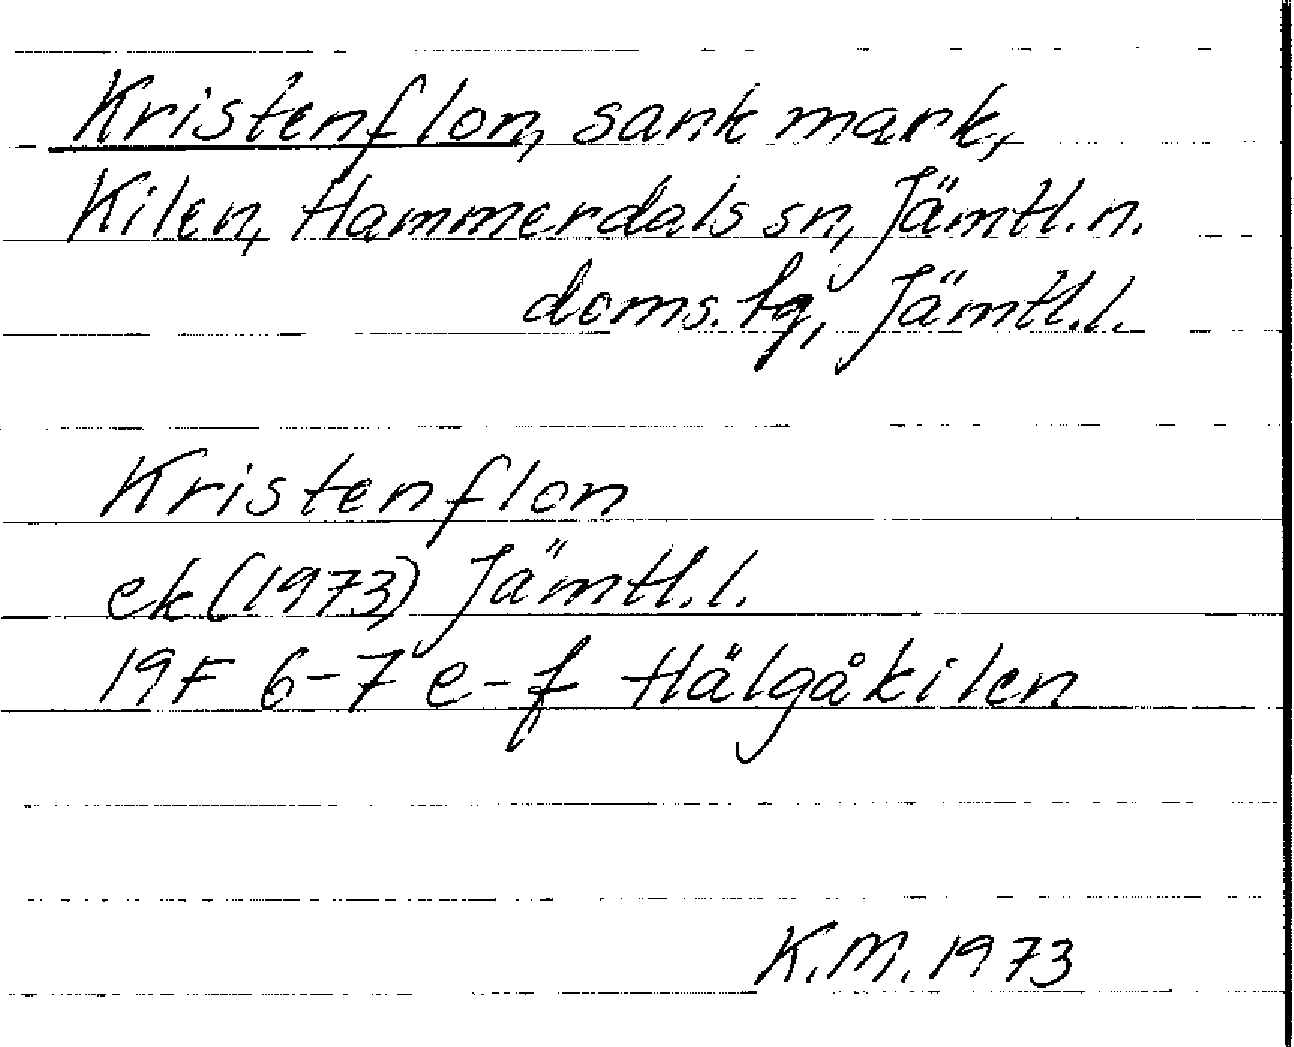 Kristenflon, sank mark,
Kilen, Hammerdals sn, Jämtl. n.
doms. tg, Jämtl. l.
Kristenflon
ek (1973) Jämtl. l.
19F 6-7 e-f Hälgåkilen
K.M. 1973